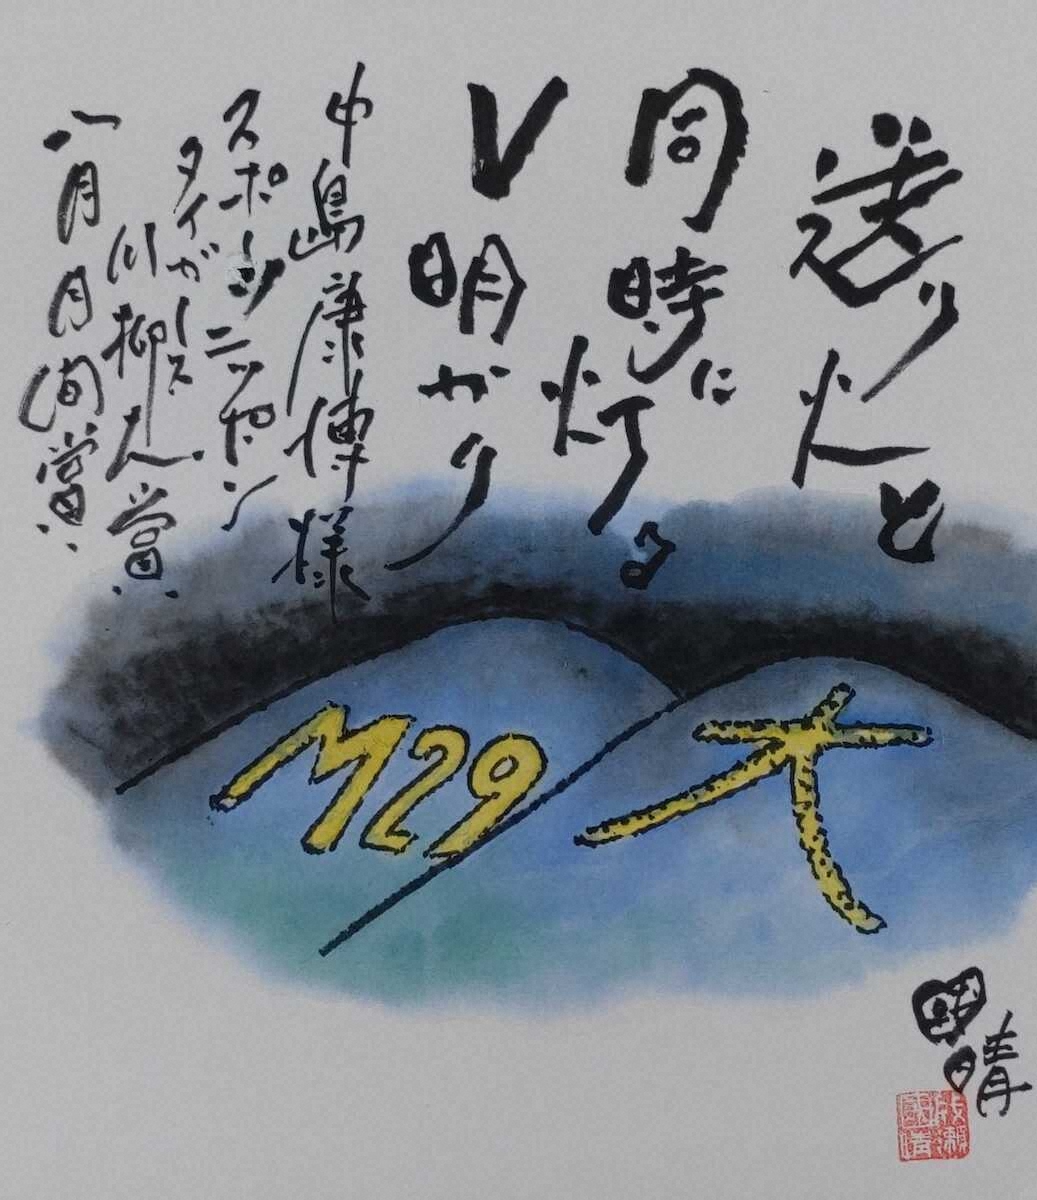 送り火と
同時に灯る
V明かり
中嶋康博様
スポーツニッポン
タイガース
川柳大賞
八月月間賞
M29
大